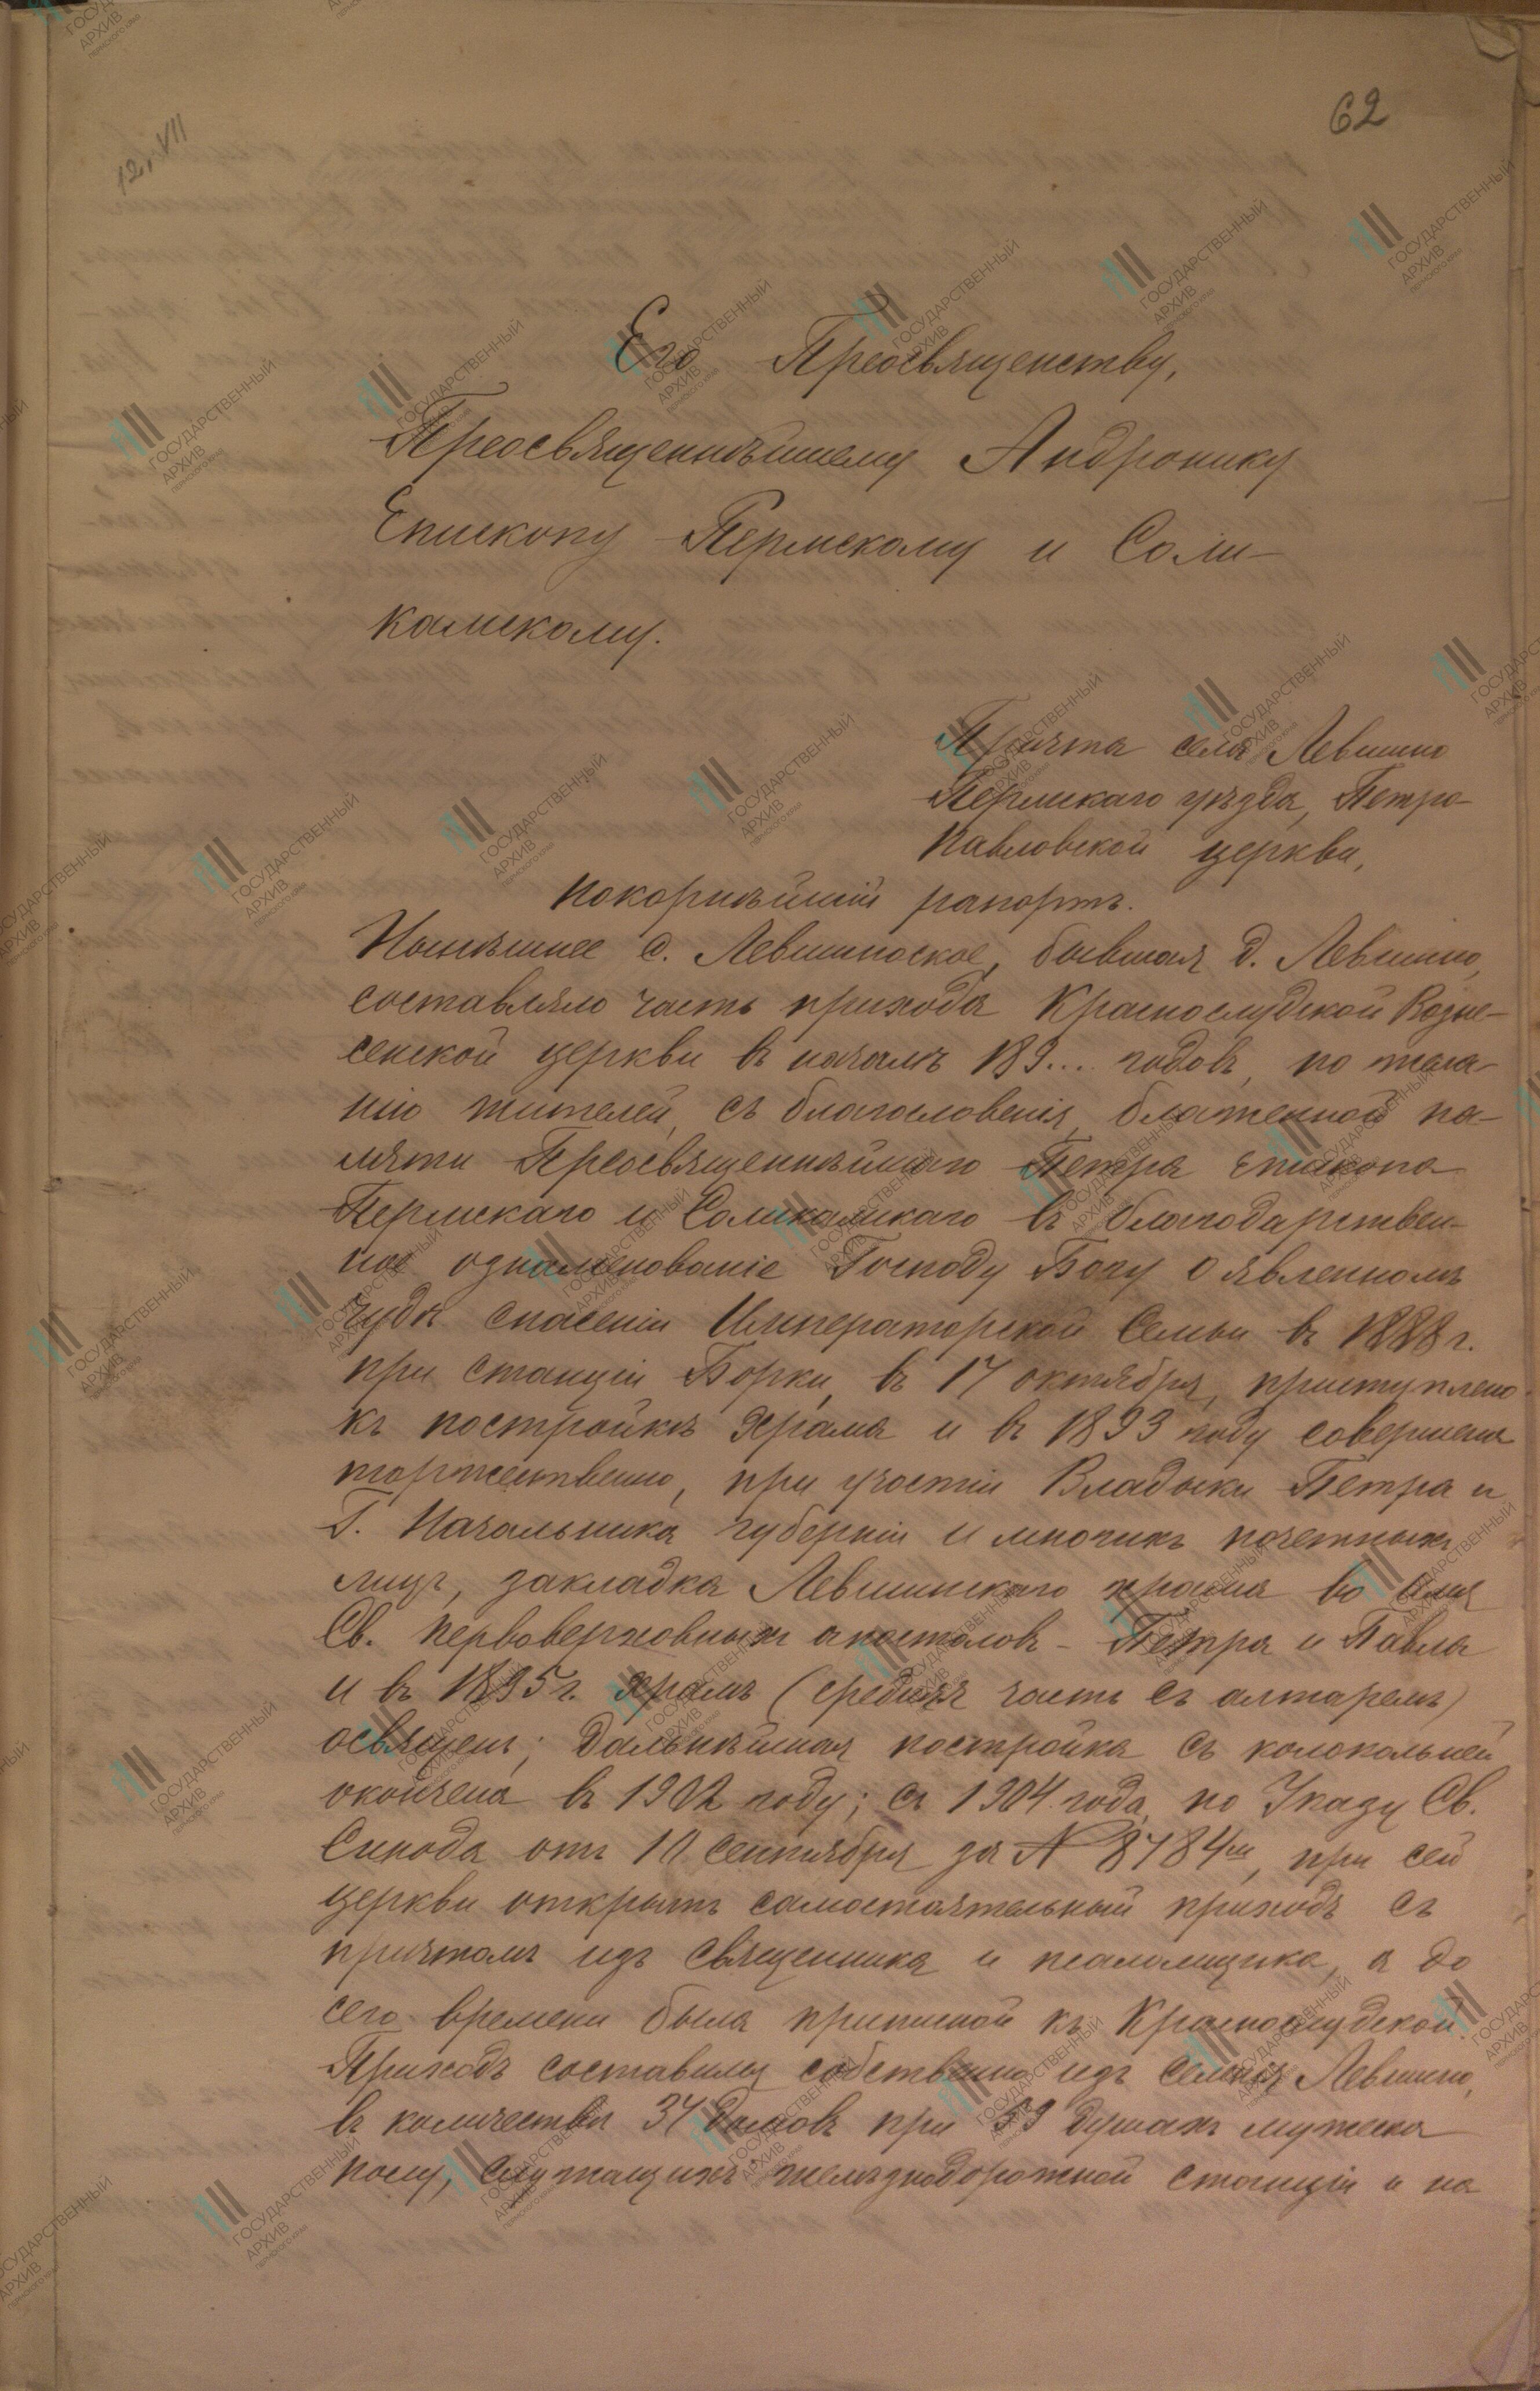 62
12, VII
Его Преосвященству,
Преосвященнѣйшему Андронику
Епископу Пермскому и Соли-
камскому.
Причта села Левшино
Пермскаго уѣзда, Петро-
павловской церкви,
покорнѣйшій рапортъ.
Нынѣшнее с. Левшинское, бывшая д. Левшино,
составляло часть прихода Краснослудской Возне-
сенской церкви въ началѣ 189... годовъ, по жела-
нію жителей, съ благословенія, блаженной па-
мяти Преосвященнѣйшаго Петра епископа
Пермскаго и Соликамскаго въ благодарствен-
ное ознаменованіе Господу Богу о явленномъ
чудѣ спасенія Императорской Семьи въ 1888 г.
при станціи Борки, въ 17 октября, приступлено
къ постройкѣ храма и въ 1893 году совершена
торжественно, при участіи Владыки Петра и
Г. Начальника губерніи и многихъ почетныхъ
лицъ, закладка Левшинскаго храма во имя
Св. первоверховныхъ апостоловъ - Петра и Павла
и въ 1895 г. храмъ (средняя часть съ алтаремъ)
освященъ; дальнѣйшая постройка съ колокольней
окончена въ 1902 году; съ 1904 года, по Указу Св.
Синода отъ 10 сентября за № 8784м, при сей
церкви открытъ самостоятельный приходъ съ
причтомъ изъ священника и псаломщика, а до
сего времени была приписной къ Краснослудской.
Приходъ составился собственно изъ селенія Левшино,
въ количествѣ 34 домовъ при 53 душахъ мужеска
полу, служащихъ желѣзнодорожной станціи и на